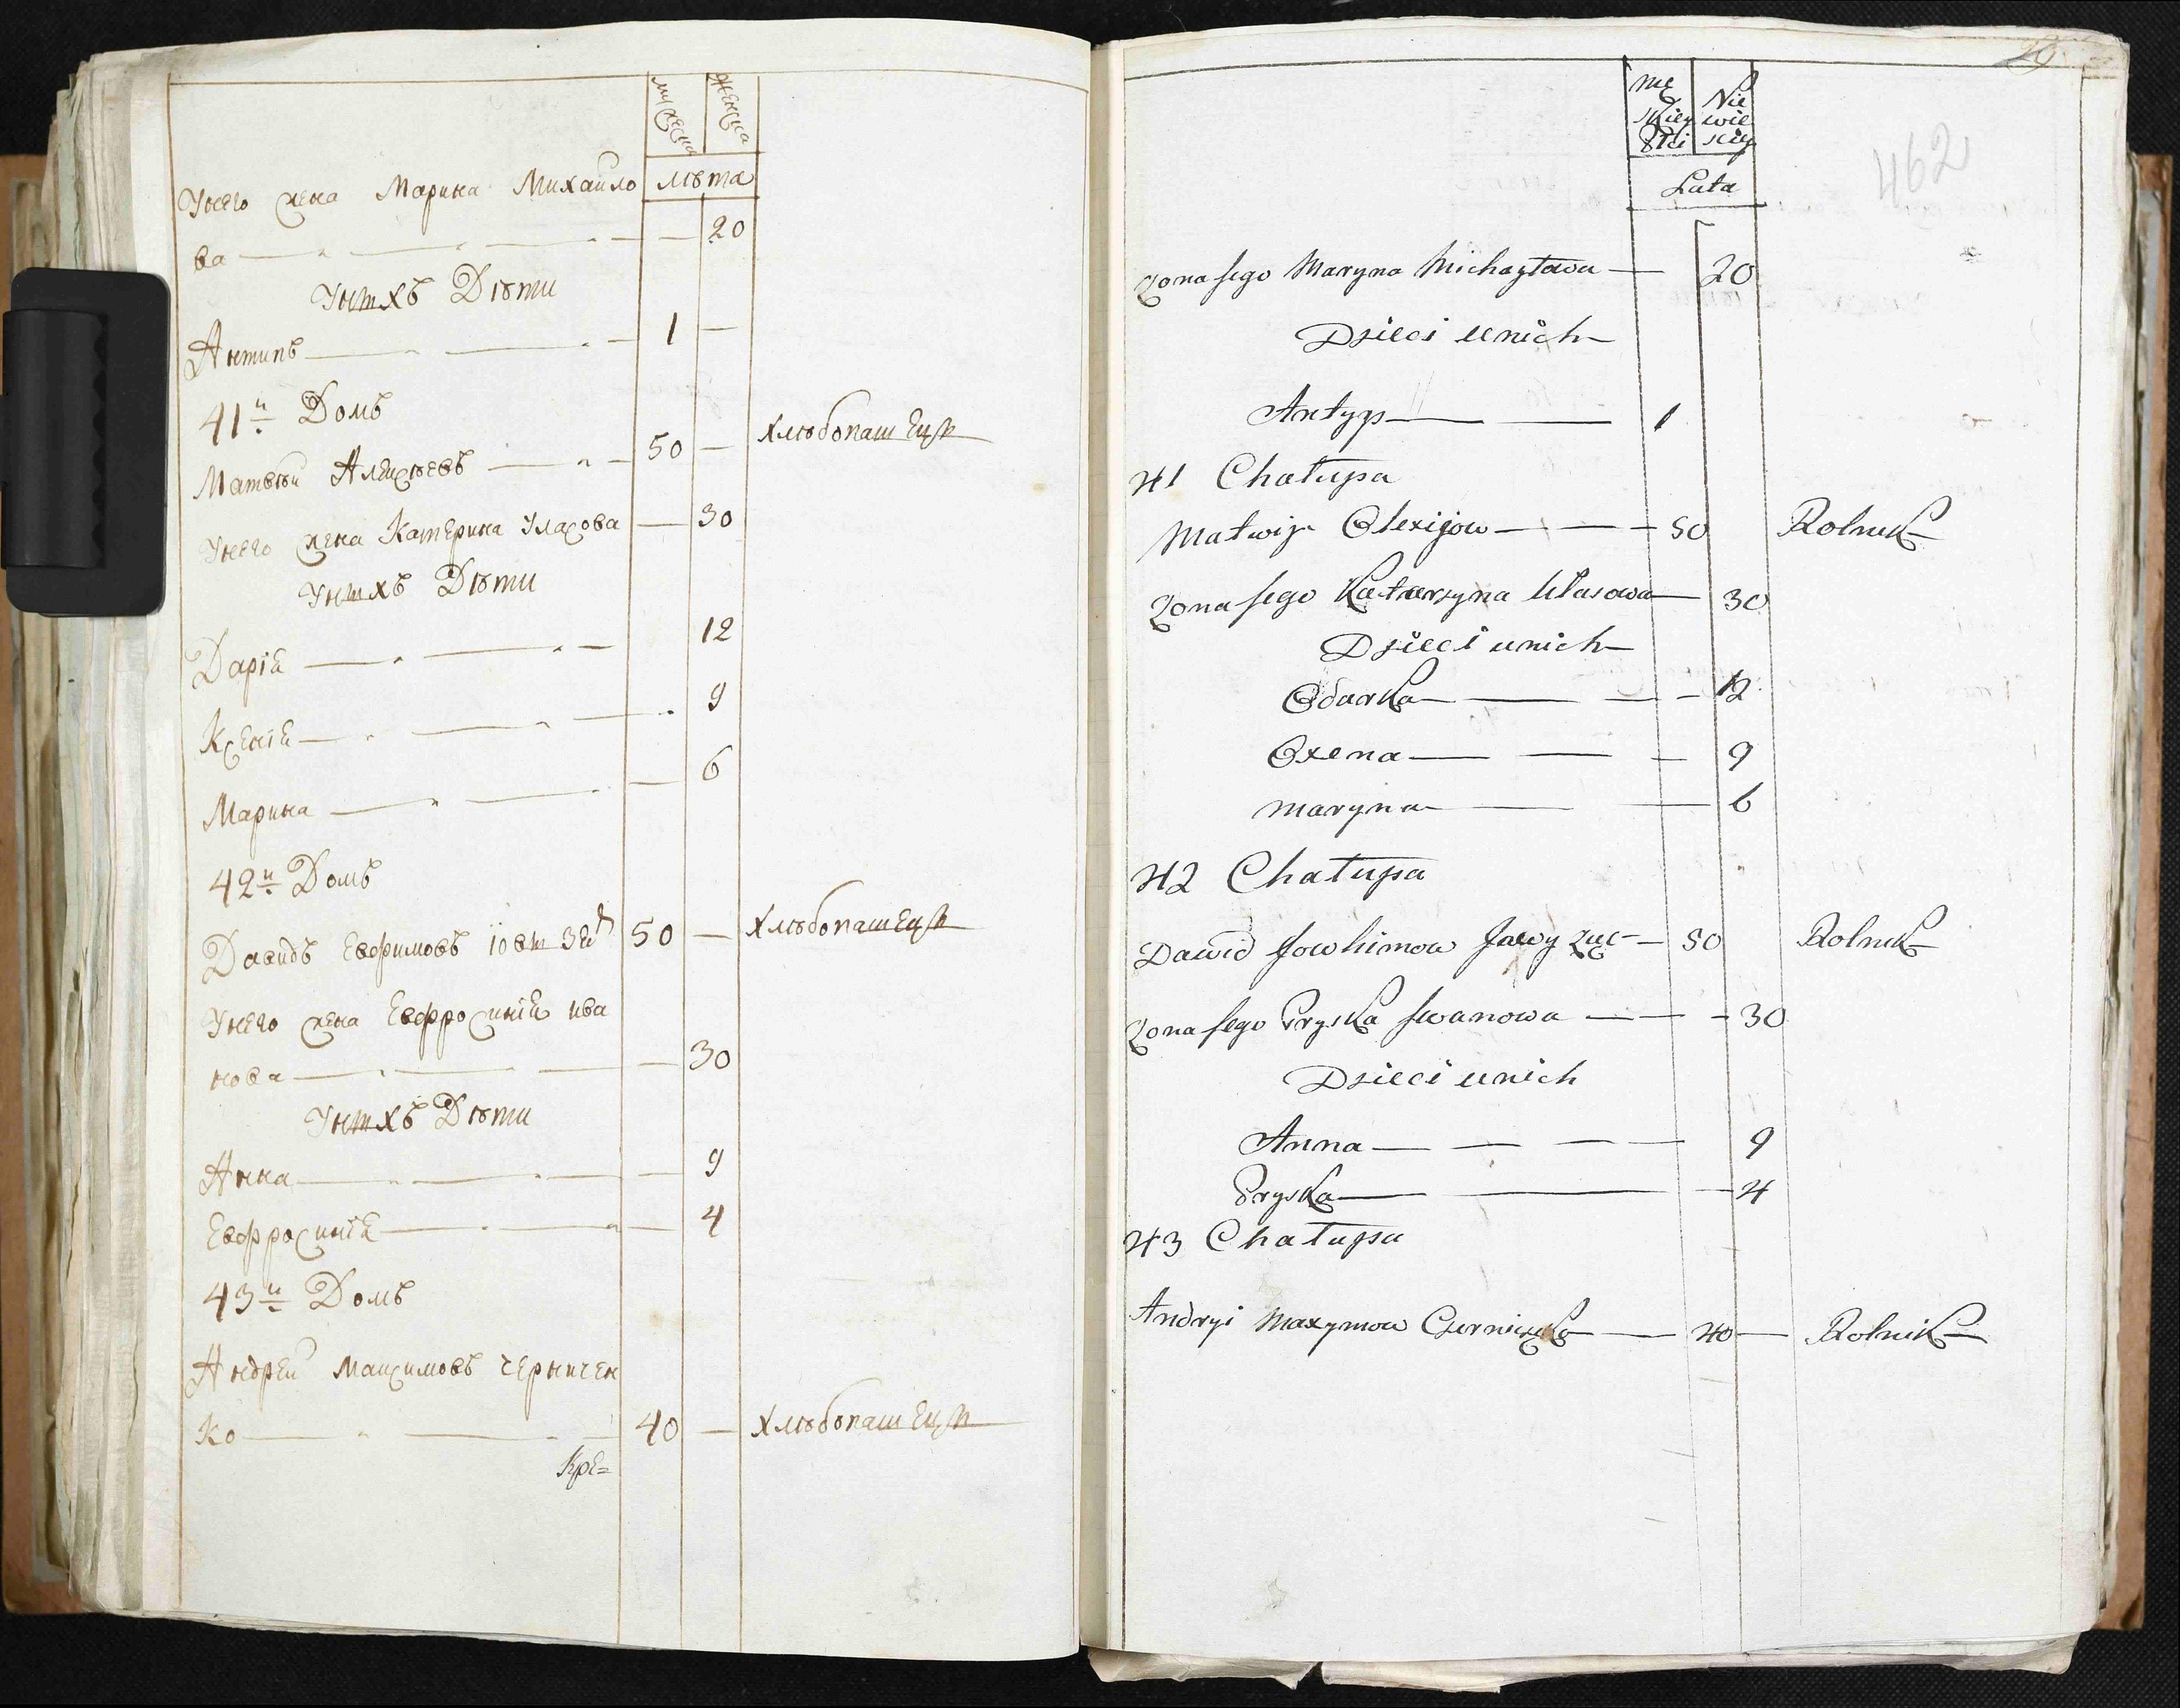 мужеска женска
лѣта
Унего жена Марина Михайло
ва — — — 20
Унихъ Дѣти
Антипъ — — 1 —
41й Домъ
Матвѣй Алексѣевъ — — 50 — хлѣбопашецъ
Унего жена Катерина Уласова — 30
Унихъ Дѣти
Дарія — — — 12
Ксенія — — — 9
Марина — — — 6
42й Домъ
Давидъ Евфимовъ 50 — хлѣбопашецъ
Унего жена Евфросинія Ива
нова — — — 30
Унихъ Дѣти
Анна — — — 9
Евфросинія — — — 4
43й Домъ
Андрей Максимовъ Черничен
ко — — — 40 — хлѣбопашецъ
Кре=
29
462
mę Nie
skiey wie
Płci sciey
Lata
Zona jego Maryna Michayłowa — 20
Dzieci unich
Antyp — — 1
41 Chałupa
Matwiy Olexijow — — — 50 Rolnik
Zona jego Katarzyna Ułasowa — 30
Dzieci unich
Odarka — — — — 12
Oxena — — — 9
Maryna — — 6
42 Chałupa
Dawid Jowhimow — 50 Rolnik
Zona jego Pryska Iwanowa — — — 30
Dzieci unich
Anna — — — — 9
Pryska — — — 4
43 Chałupa
Andryi Maxymow Czerniczko — 40 — Rolnik